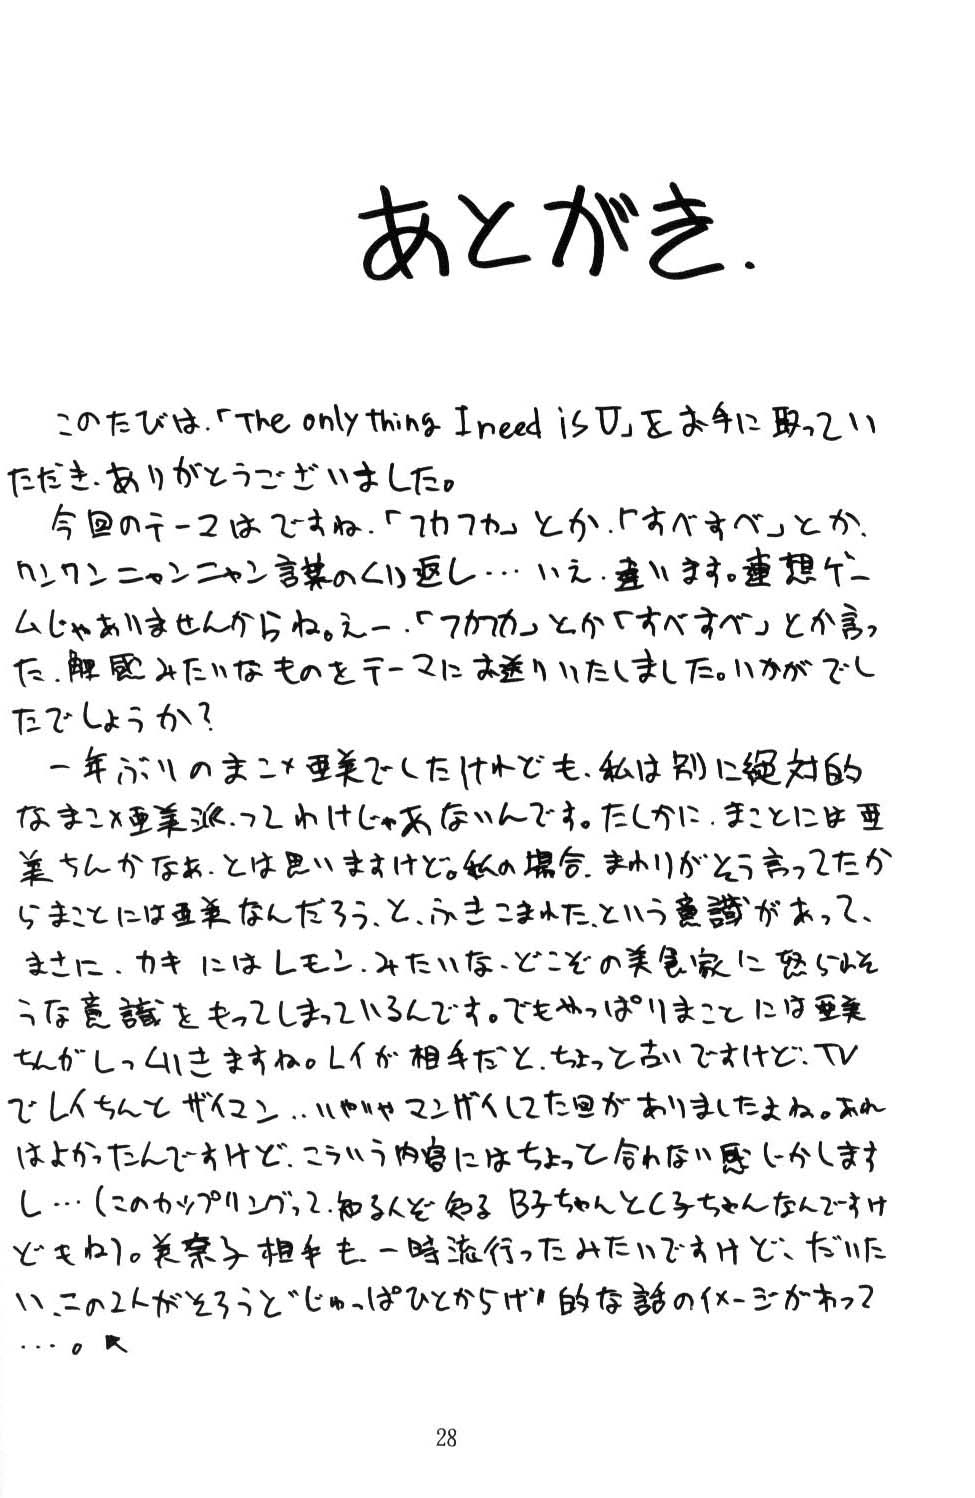 あとがき.
このたびは、「The only thing I need is U」をお手に取ってい
ただき、ありがとうございました。
今回のテーマはですね、「フカフカ」とか、「すべすべ」とか、
ワンワンニャンニャン言葉のくり返し…いえ、違います。連想ゲー
ムじゃありませんからね。えー、「フカフカ」とか「すべすべ」とか言っ
た、触感みたいなものをテーマにお送りいたしました。いかがでし
たでしょうか?
一年ぶりのまこ×亜美でしたけれども、私は別に絶対的
なまこ×亜美派、ってわけじゃあないんです。たしかに、まことには亜
美ちんかなぁ、とは思いますけど。私の場合、まわりがそう言ってたか
らまことには亜美なんだろう、と、ふきこまれた、という意識があって、
まさに、カキにはレモン、みたいな、どこぞの美食家に怒られそ
うな意識をもってしまっているんです。でもやっぱりまことには亜美
ちんがしっくりきますね。レイが相手だと、ちょっと古いですけど、TV
でレイちんとザイマン、いやいやマンザイしてた回がありましたよね。あれ
はよかったんですけど、こういう内容にはちょっと合わない感じがします
し…(このカップリングって、知る人ぞ知るB子ちゃんとC子ちゃんなんですけ
どもね)。美奈子相手も、一時流行ったみたいですけど、だいた
い、この2人がそろうと〝じゅっぱひとからげ〟的な話のイメージがわって
…。↖
28